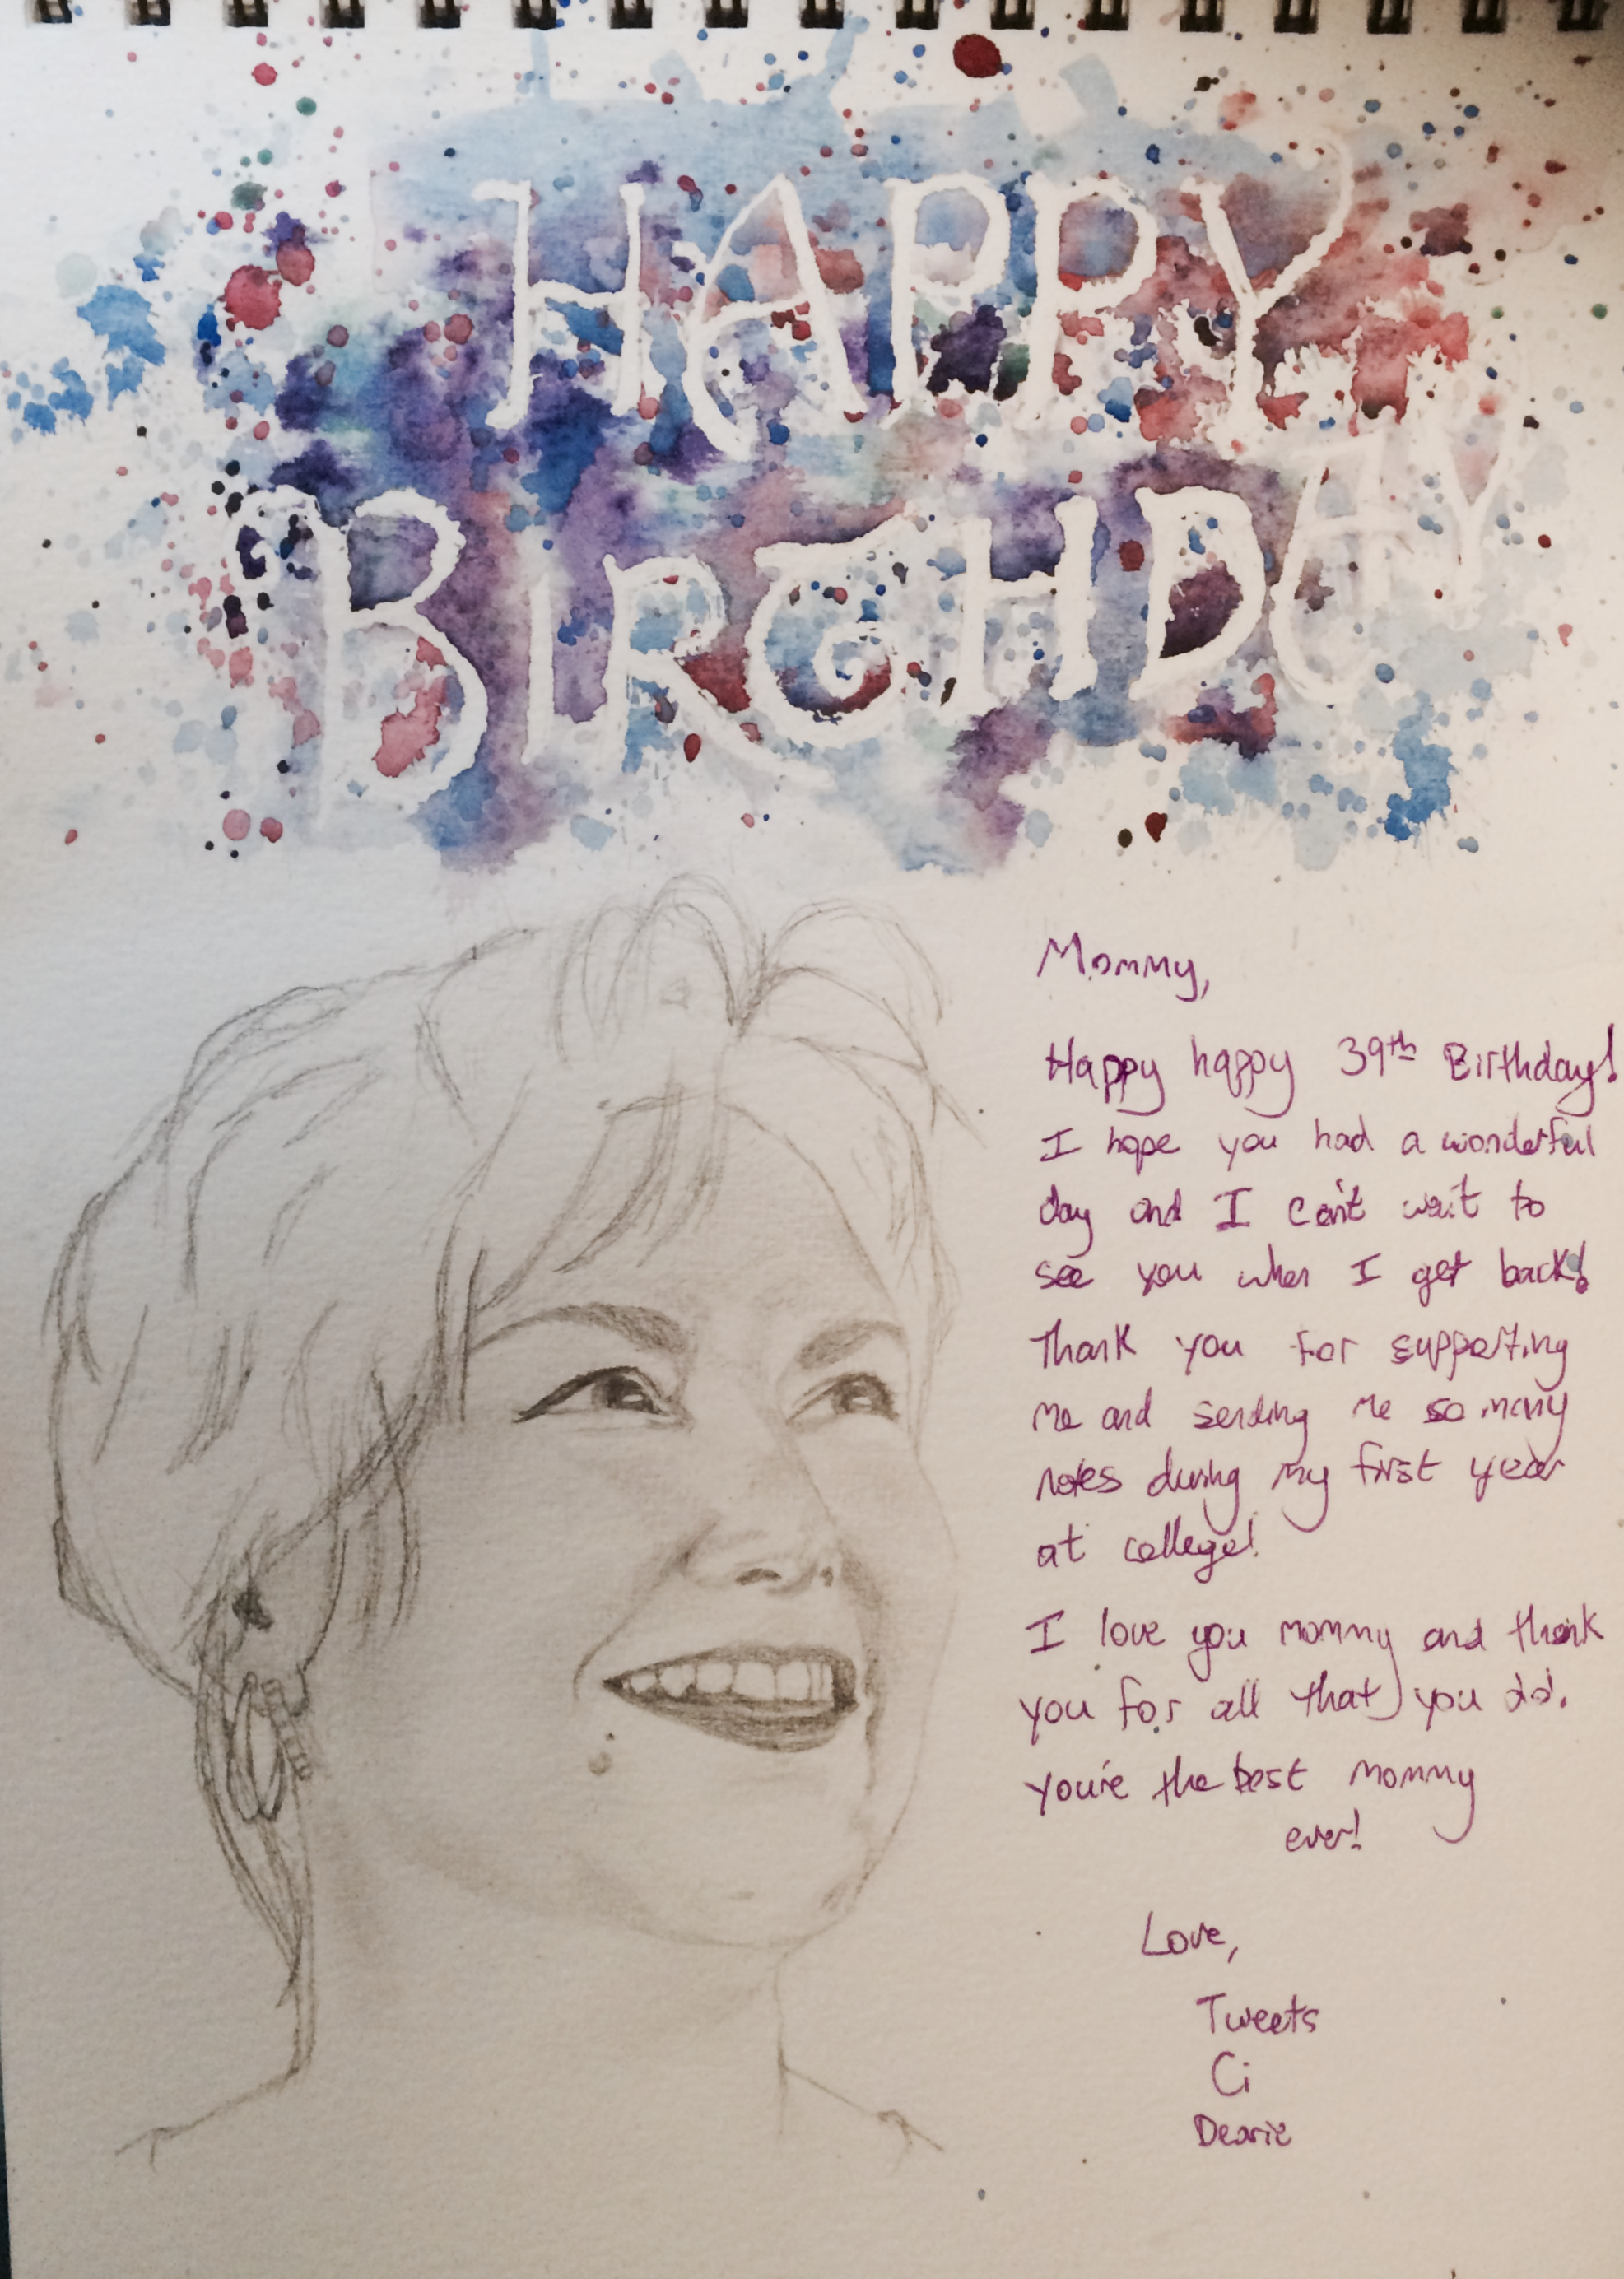 HAPPY
BIRTHDAY
Mommy,
Happy happy 39th Birthday!
I hope you had a wonderful
day and I can't wait to
see you when I get back!
Thank you for supporting
me and sending me so many
notes during my first year
at college!
I love you mommy and thank
you for all that you do.
You're the best mommy
ever!
Love,
Tweets
Ci
Dearie